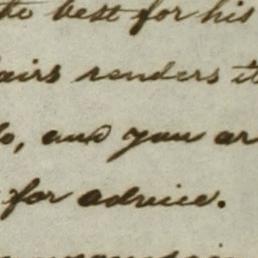 the best for his
airs renders it
lo, and you ar
for advice.